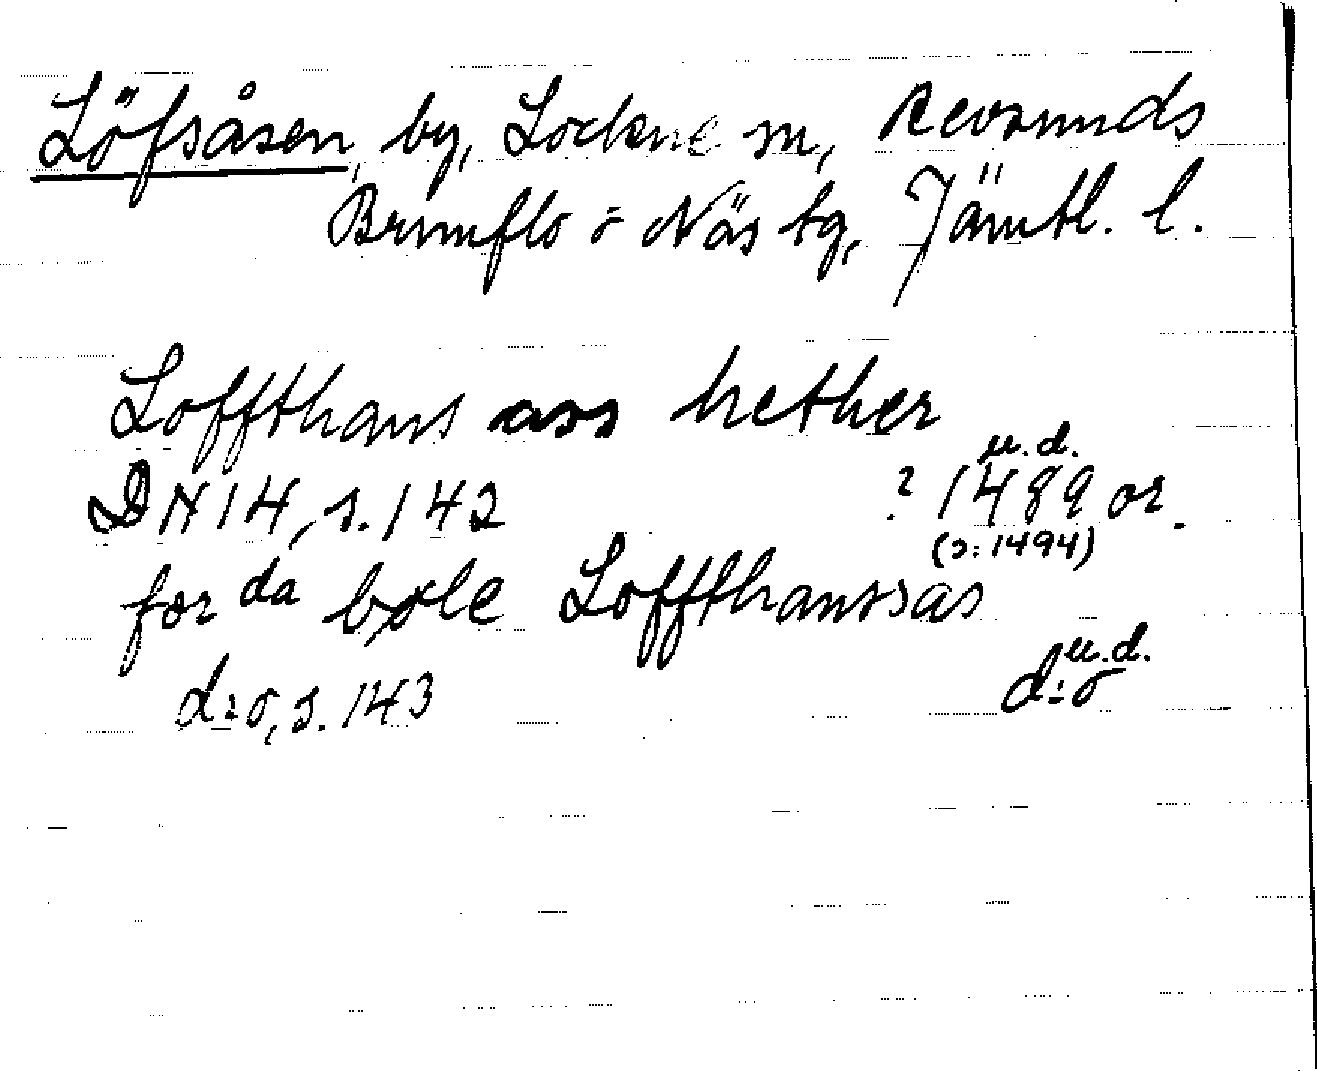 Löfsåsen, by, Lockne sn, Revsunds
Brunflo o Näs tg, Jämtl. l.
Loffthans ass hether
u.d.
DN 14, s. 142 ? 1489 or.
(ɔ: 1494)
for da bole Loffthanssas
u.d.
d:o, s. 143 d:o